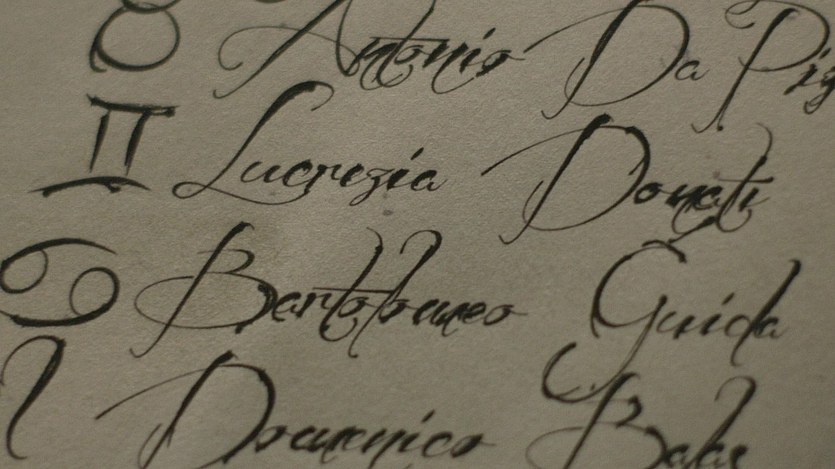 ♉ Antonio Da
♊ Lucrezia Donati
♋ Bartolomeo Guida
♌ Domenico